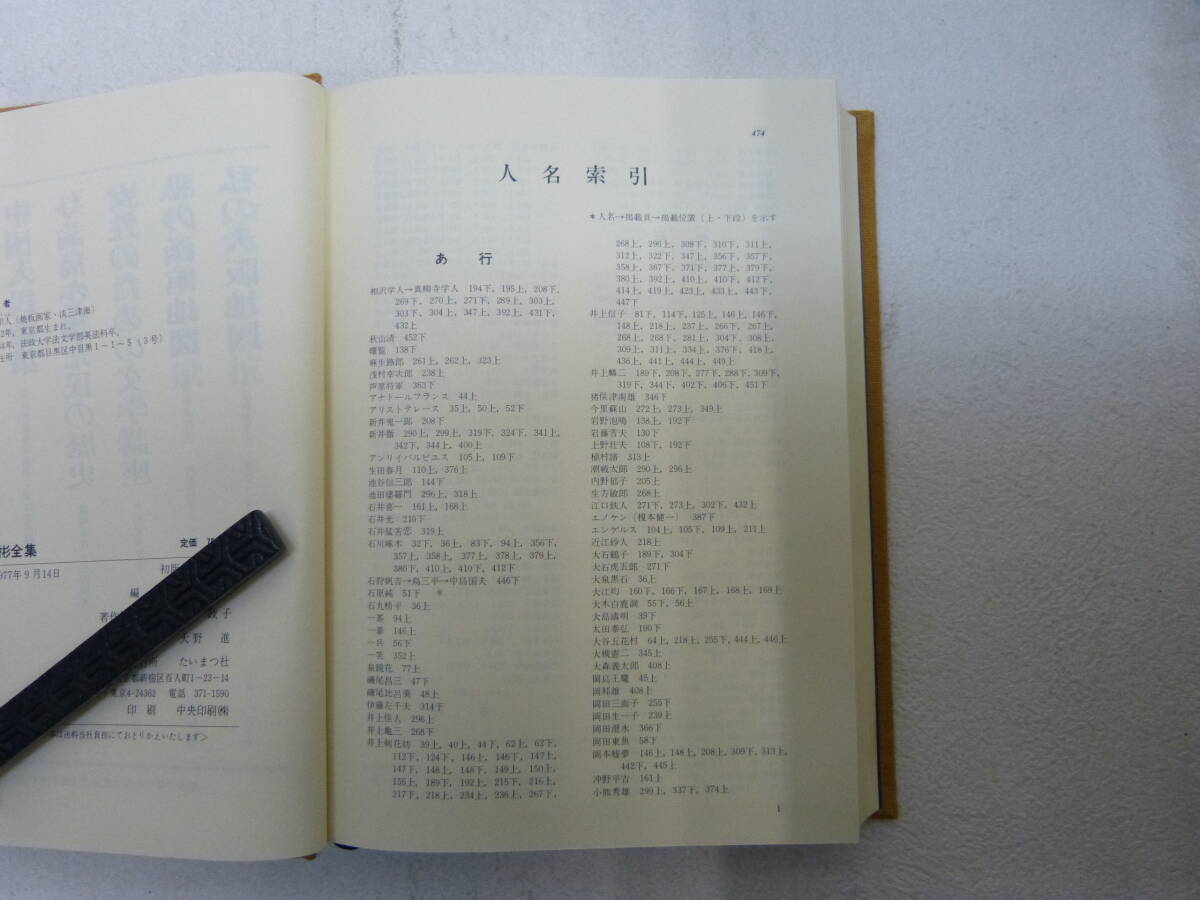 者
東京都生まれ。
法政大学法文学部英法科卒。
東京都目黒区中目黒1－1－5（3号）
彬全集
定価
1977年9月14日
初版
編
著作
敦子
大野　進
たいまつ社
都新宿区百人町1－23－14
東京4-24362　電話　371-1590
印刷　中央印刷㈱
474
人名索引
＊人名→掲載頁→掲載位置（上・下段）を示す
あ　行
相沢学人→真柳寺学人　194下，195上，208下，
269下，270上，271下，289上，303上，
303下，304上，347上，392上，431下，
432上
秋山清　452下
曙覧　138下
麻生路郎　261上，262上，323上
浅村幸次郎　238上
芦原将軍　363下
アナトールフランス　44上
アリストテレース　35上，50上，52下
新井鬼一郎　208下
新井徹　290上，299上，319下，324下，341上，
342下，344上，400上
アンリイバルビユス　105上，109下
生田春月　110上，376上
池谷信三郎　144下
池田婆羅門　296上，318上
石井喜一　161上，168上
石井光　210下
石井猛苦恋　319上
石川啄木　32下，36上，83下，94上，356下，
357上，358上，377上，378上，379上，
380下，410上，410下，412下
石狩帆吉→烏三平→中島国夫　446下
石原純　51下
石丸梧平　36上
一茶　94上
一葉　146上
一兵　56下
一笑　352上
泉鏡花　77上
磯尾昌三　47下
磯尾比呂美　48上
伊藤左千夫　314下
井上佳人　296上
井上亀三　268下
井上剣花坊　39上，40上，44下，62上，62下，
112下，124下，146上，146下，147上，
147下，148上，148下，149上，150上，
155上，189下，192上，215下，216上，
217下，218上，234上，236上，267下，
268上，296上，308下，310下，311上，
312上，322下，347上，356下，357下，
358上，367下，371下，377上，379下，
380上，392上，410上，410下，412下，
414上，419上，423上，433上，443下，
447下
井上信子　81下，114下，125上，146上，146下，
148上，218上，237上，266下，267上，
268上，268下，281上，304下，308上，
309上，311上，334上，376下，418上，
436上，441上，444上，449上
井上麟二　189下，208下，277下，288下，309下，
319下，344下，402下，406下，451下
猪俣津南雄　346下
今里蘇山　272上，273上，349上
岩野泡鳴　138上，192下
岩藤雪夫　130下
上野壮夫　108下，192下
植村諦　313上
潮戦太郎　290上，296上
内野郁子　205上
生方敏郎　268上
江口鉄人　271下，273上，302下，432上
エノケン（榎本健一）　387下
エンゲルス　104上，105下，109上，211上
近江紗人　218上
大石鶴子　189下，304下
大石虎五郎　271下
大泉黒石　36上
大江均　160下，166下，167上，168上，169上
大木白鹿洞　55下，56上
大島濤明　39下
太田泰弘　190下
大谷五花村　64上，218上，255下，444上，446上
大槻憲二　345上
大森義太郎　408上
岡島王魔　45上
岡邦雄　408上
岡田三面子　255下
岡田生一子　239上
岡田澄水　366下
岡田東魚　58下
岡本嘘夢　146上，148上，208上，309下，313上，
442下，445上
沖野平吉　161上
小熊秀雄　299上，337下，374上
1